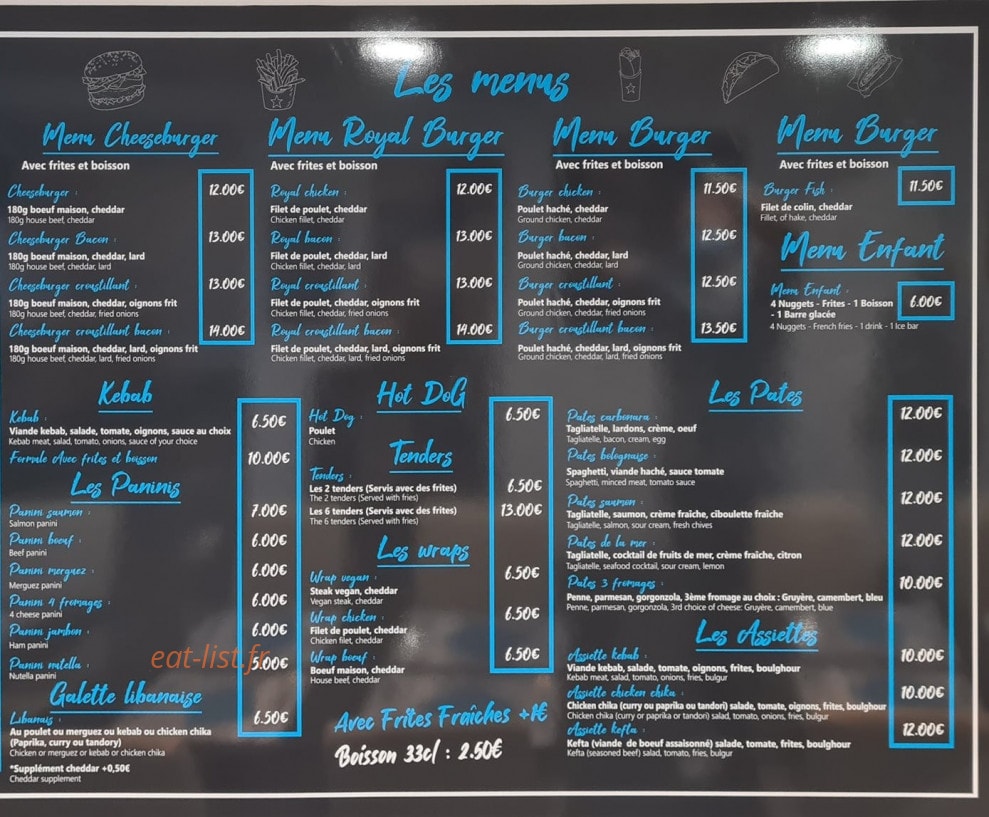 Les menus
Menu Cheeseburger
Avec frites et boisson
Cheeseburger : 12.00€
180g boeuf maison, cheddar
180g house beef, cheddar
Cheeseburger Bacon : 13.00€
180g boeuf maison, cheddar, lard
180g house beef, cheddar, lard
Cheeseburger croustillant : 13.00€
180g boeuf maison, cheddar, oignons frit
180g house beef, cheddar, fried onions
Cheeseburger croustillant bacon : 14.00€
180g boeuf maison, cheddar, lard, oignons frit
180g house beef, cheddar, lard, fried onions
Menu Royal Burger
Avec frites et boisson
Royal chicken : 12.00€
Filet de poulet, cheddar
Chicken fillet, cheddar
Royal bacon : 13.00€
Filet de poulet, cheddar, lard
Chicken fillet, cheddar, lard
Royal croustillant : 13.00€
Filet de poulet, cheddar, oignons frit
Chicken fillet, cheddar, fried onions
Royal croustillant bacon : 14.00€
Filet de poulet, cheddar, lard, oignons frit
Chicken fillet, cheddar, lard, fried onions
Menu Burger
Avec frites et boisson
Burger chicken : 11.50€
Poulet haché, cheddar
Ground chicken, cheddar
Burger bacon : 12.50€
Poulet haché, cheddar, lard
Ground chicken, cheddar, lard
Burger croustillant : 12.50€
Poulet haché, cheddar, oignons frit
Ground chicken, cheddar, fried onions
Burger croustillant bacon : 13.50€
Poulet haché, cheddar, lard, oignons frit
Ground chicken, cheddar, lard, fried onions
Menu Burger
Avec frites et boisson
Burger Fish : 11.50€
Filet de colin, cheddar
Fillet, of hake, cheddar
Menu Enfant
Menu Enfant : 6.00€
4 Nuggets - Frites - 1 Boisson
- 1 Barre glacée
4 Nuggets - French fries - 1 drink - 1 Ice bar
Kebab
Kebab : 6.50€
Viande kebab, salade, tomate, oignons, sauce au choix
Kebab meat, salad, tomato, onions, sauce of your choice
Formule Avec frites et boisson 10.00€
Les Paninis
Panini saumon : 7.00€
Salmon panini
Panini boeuf : 6.00€
Beef panini
Panini merguez : 6.00€
Merguez panini
Panini 4 fromages : 6.00€
4 cheese panini
Panini jambon : 6.00€
Ham panini
Panini nutella : 5.00€
Nutella panini
eat-list.fr
Galette libanaise
Libanais : 6.50€
Au poulet ou merguez ou kebab ou chicken chika
(Paprika, curry ou tandory)
Chicken or merguez or kebab or chicken chika
*Supplément cheddar +0,50€
Cheddar supplement
Hot DoG
Hot Dog : 6.50€
Poulet
Chicken
Tenders
Tenders :
Les 2 tenders (Servis avec des frites) 6.50€
The 2 tenders (Served with fries)
Les 6 tenders (Servis avec des frites) 13.00€
The 6 tenders (Served with fries)
Les wraps
Wrap vegan : 6.50€
Steak vegan, cheddar
Vegan steak, cheddar
Wrap chicken : 6.50€
Filet de poulet, cheddar
Chicken filet, cheddar
Wrap boeuf : 6.50€
Boeuf maison, cheddar
House beef, cheddar
Avec Frites Fraîches +1€
Boisson 33cl : 2.50€
Les Pates
Pates carbonara : 12.00€
Tagliatelle, lardons, crème, oeuf
Tagliatelle, bacon, cream, egg
Pates bolognaise : 12.00€
Spaghetti, viande haché, sauce tomate
Spaghetti, minced meat, tomato sauce
Pates saumon : 12.00€
Tagliatelle, saumon, crème fraîche, ciboulette fraîche
Tagliatelle, salmon, sour cream, fresh chives
Pates de la mer : 12.00€
Tagliatelle, cocktail de fruits de mer, crème fraîche, citron
Tagliatelle, seafood cocktail, sour cream, lemon
Pates 3 fromages : 10.00€
Penne, parmesan, gorgonzola, 3ème fromage au choix : Gruyère, camembert, bleu
Penne, parmesan, gorgonzola, 3rd choice of cheese: Gruyère, camembert, blue
Les Assiettes
Assiette kebab : 10.00€
Viande kebab, salade, tomate, oignons, frites, boulghour
Kebab meat, salad, tomato, onions, fries, bulgur
Assiette chicken chika : 10.00€
Chicken chika (curry ou paprika ou tandori) salade, tomate, oignons, frites, boulghour
Chicken chika (curry or paprika or tandori) salad, tomato, onions, fries, bulgur
Assiette kefta : 12.00€
Kefta (viande de boeuf assaisonné) salade, tomate, frites, boulghour
Kefta (seasoned beef) salad, tomato, fries, bulgur